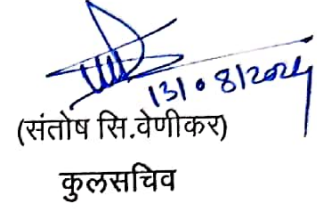 13/08/2024
(संतोष सि.वेणीकर)
कुलसचिव